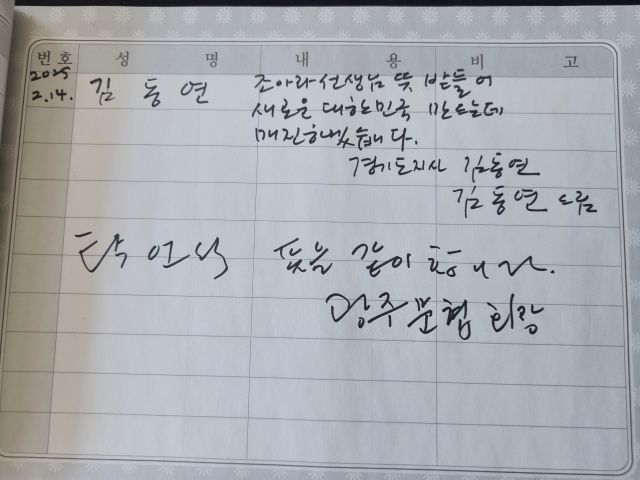 번호 성명 내용 비고
2025
2.14. 김동연 조아라선생님 뜻 받들어
새로운 대한민국 만드는데
매진하겠습니다.
경기도지사 김동연
김동연 드림
탁인석 뜻을 같이 합니다.
광주문협 회장